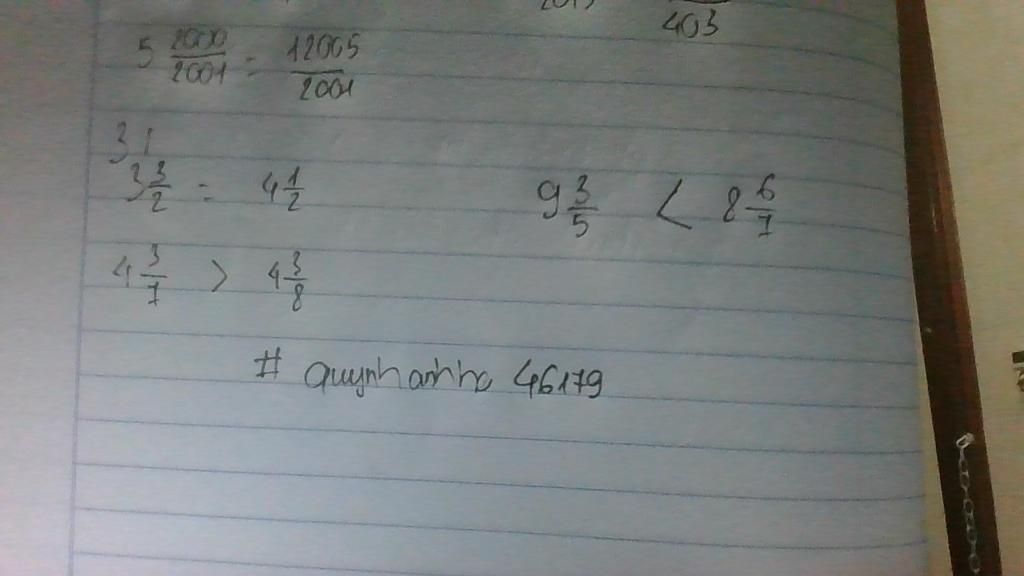 403
5 2000/2001 = 12005/2001
31
3 3/2 = 4 1/2
9 3/5 < 8 6/7
4 3/7 > 4 3/8
# quynhanhhc 46179